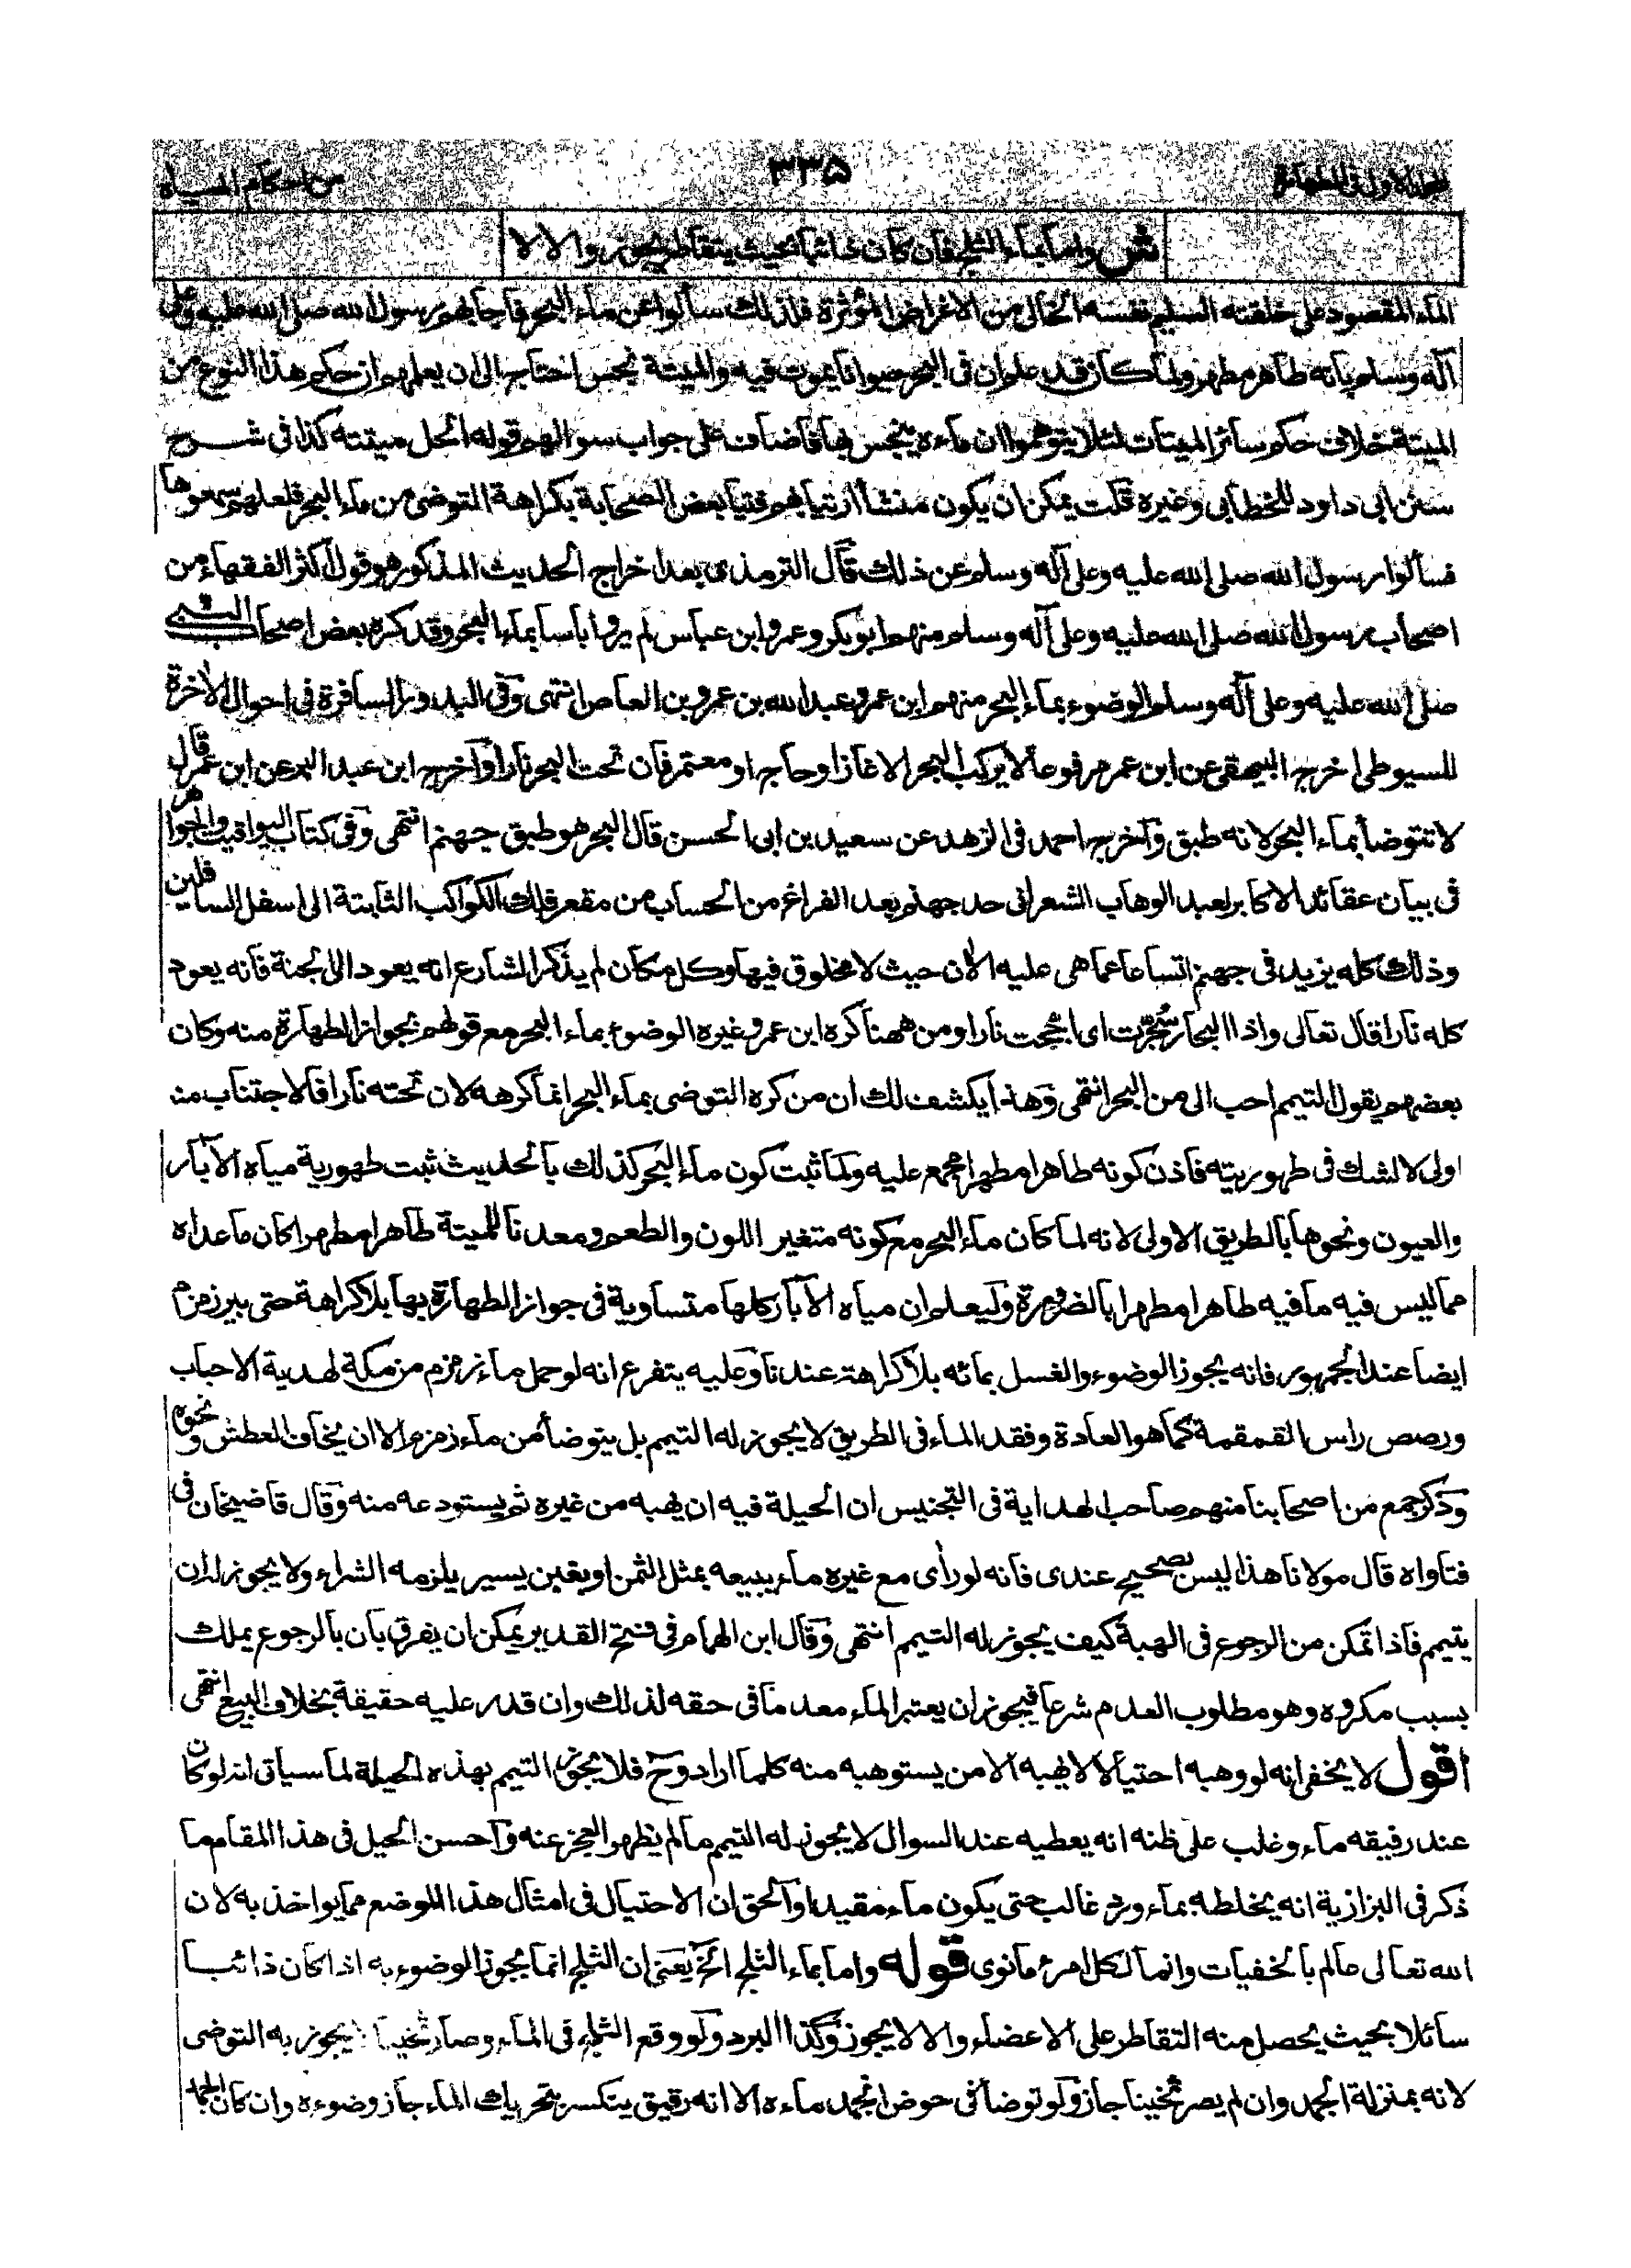 من احكام المياه ۳۳۵ المجلد الاول فى الطهارة
ش واما بماء الثلج فان كان ذائبا بحيث يتقاطر يجوز والا لا
الماء المقصود على خلقته السليم نفسه الخالى من الاغراض المؤثرة فلذلك سألوا عن ماء البحر فاجابهم رسول الله صلى الله عليه وعلى
آله وسلم بانه طاهر مطهر ولما كان قد علم ان فى البحر حيوانا يموت فيه والميتة نجس احتاج الى ان يعلمهم ان حكم هذا النوع من
الميتة خلاف حكم سائر الميتات لئلا يتوهموا ان ماءه ينجس بها فاضاف على جواب سوالهم قوله الحل ميتته كذا فى شرح
سنن ابى داود للخطابى وغيره قلت يمكن ان يكون منشأ ارتيابهم فتيا بعض الصحابة بكراهة التوضئ من ماء البحر فلعلهم سمعوها
فسألوا رسول الله صلى الله عليه وعلى آله وسلم عن ذلك قال الترمذى بعد اخراج الحديث المذكور هو قول اكثر الفقهاء من
اصحاب رسول الله صلى الله عليه وعلى آله وسلم منهم ابو بكر وعمر وابن عباس لم يروا باسا بماء البحر وقد كره بعض اصحاب النبى
صلى الله عليه وعلى آله وسلم الوضوء بماء البحر منهم ابن عمر وعبد الله بن عمرو بن العاص انتهى وفى البدور السافرة فى احوال الاخرة
للسيوطى اخرج البيهقى عن ابن عمر مرفوعا لا يركب البحر الا غاز او حاج او معتمر فان تحت البحر نارا واخرج ابن عبد البر عن ابن عمر قال
لا تتوضأ بماء البحر لانه طبق واخرج احمد فى الزهد عن سعيد بن ابى الحسن قال البحر هو طبق جهنم انتهى وفى كتاب اليواقيت والجواهر
فى بيان عقائد الاكابر لعبد الوهاب الشعرانى حد جهنم بعد الفراغ من الحساب من مقعر فلك الكواكب الثابتة الى اسفل السافلين
وذلك كله يزيد فى جهنم اتساعا عما هى عليه الان حيث لا مخلوق فيها وكل مكان لم يذكر الشارع انه يعود الى الجنة فانه يعود
كله نارا قال تعالى واذا البحار سُجّرت اى اججت نارا ومن ههنا كره ابن عمر وغيره الوضوء بماء البحر مع قولهم بجواز الطهارة منه وكان
بعضهم يقول التيمم احب الى من البحر انتهى وهذا يكشف لك ان من كره التوضى بماء البحر انما كرهه لان تحته نارا فالاجتناب منه
اولى لا لشك فى طهوريته فاذن كونه طاهرا مطهرا مجمع عليه ولما ثبت كون ماء البحر كذلك بالحديث ثبت طهورية مياه الآبار
والعيون ونحوها بالطريق الاولى لانه لما كان ماء البحر مع كونه متغير اللون والطعم ومعدنا للميتة طاهرا مطهرا كان ما عداه
مما ليس فيه ما فيه طاهرا مطهرا بالضرورة وليعلم ان مياه الآبار كلها متساوية فى جواز الطهارة بها بلا كراهة حتى بير زمزم
ايضا عند الجمهور فانه يجوز الوضوء والغسل بمائه بلا كراهة عندنا وعليه يتفرع انه لو حمل ماء زمزم من مكة لهدية الاحباب
ورصص راس القمقمة كما هو العادة وفقد الماء فى الطريق لا يجوز له التيمم بل يتوضأ من ماء زمزم الا ان يخاف العطش ونحوه
وذكر جمع من اصحابنا منهم صاحب الهداية فى التجنيس ان الحيلة فيه ان يهبه من غيره ثم يستودعه منه وقال قاضيخان فى
فتاواه قال مولانا هذا ليس بصحيح عندى فانه لو رأى مع غيره ماء يبيعه بمثل الثمن او بغبن يسير يلزمه الشراء ولا يجوز له ان
يتيمم فاذا تمكن من الرجوع فى الهبة كيف يجوز له التيمم انتهى وقال ابن الهمام فى فتح القدير يمكن ان يفرق بان بالرجوع يملك
بسبب مكروه وهو مطلوب العدم شرعا فيجوز ان يعتبر الماء معدما فى حقه لذلك وان قدر عليه حقيقة بخلاف البيع انتهى
اقول لا يخفى انه لو وهبه احتيالا لا يهبه الا من يستوهبه منه كلما اراد وح فلا يجوز التيمم بهذه الحيلة لما سياتى انه لو كان
عند رفيقه ماء وغلب على ظنه انه يعطيه عند السوال لا يجوز له التيمم ما لم يظهر العجز عنه واحسن الحيل فى هذا المقام ما
ذكر فى البزازية انه يخلطه بماء ورد غالب حتى يكون ماء مقيدا والحق ان الاحتيال فى امثال هذا الموضع مما يواخذ به لان
الله تعالى عالم بالخفيات وانما لكل امرء ما نوى قوله واما بماء الثلج الخ يعنى ان الثلج انما يجوز الوضوء به اذا كان ذائبا
سائلا بحيث يحصل منه التقاطر على الاعضاء والا لا يجوز وكذا البرد ولو وقع الثلج فى الماء وصار ثخينا لا يجوز به التوضى
لانه بمنزلة الجمد وان لم يصر ثخينا جاز ولو توضأ فى حوض انجمد ماءه الا انه رقيق يتكسر بتحريك الماء جاز وضوءه وان كان الجمد